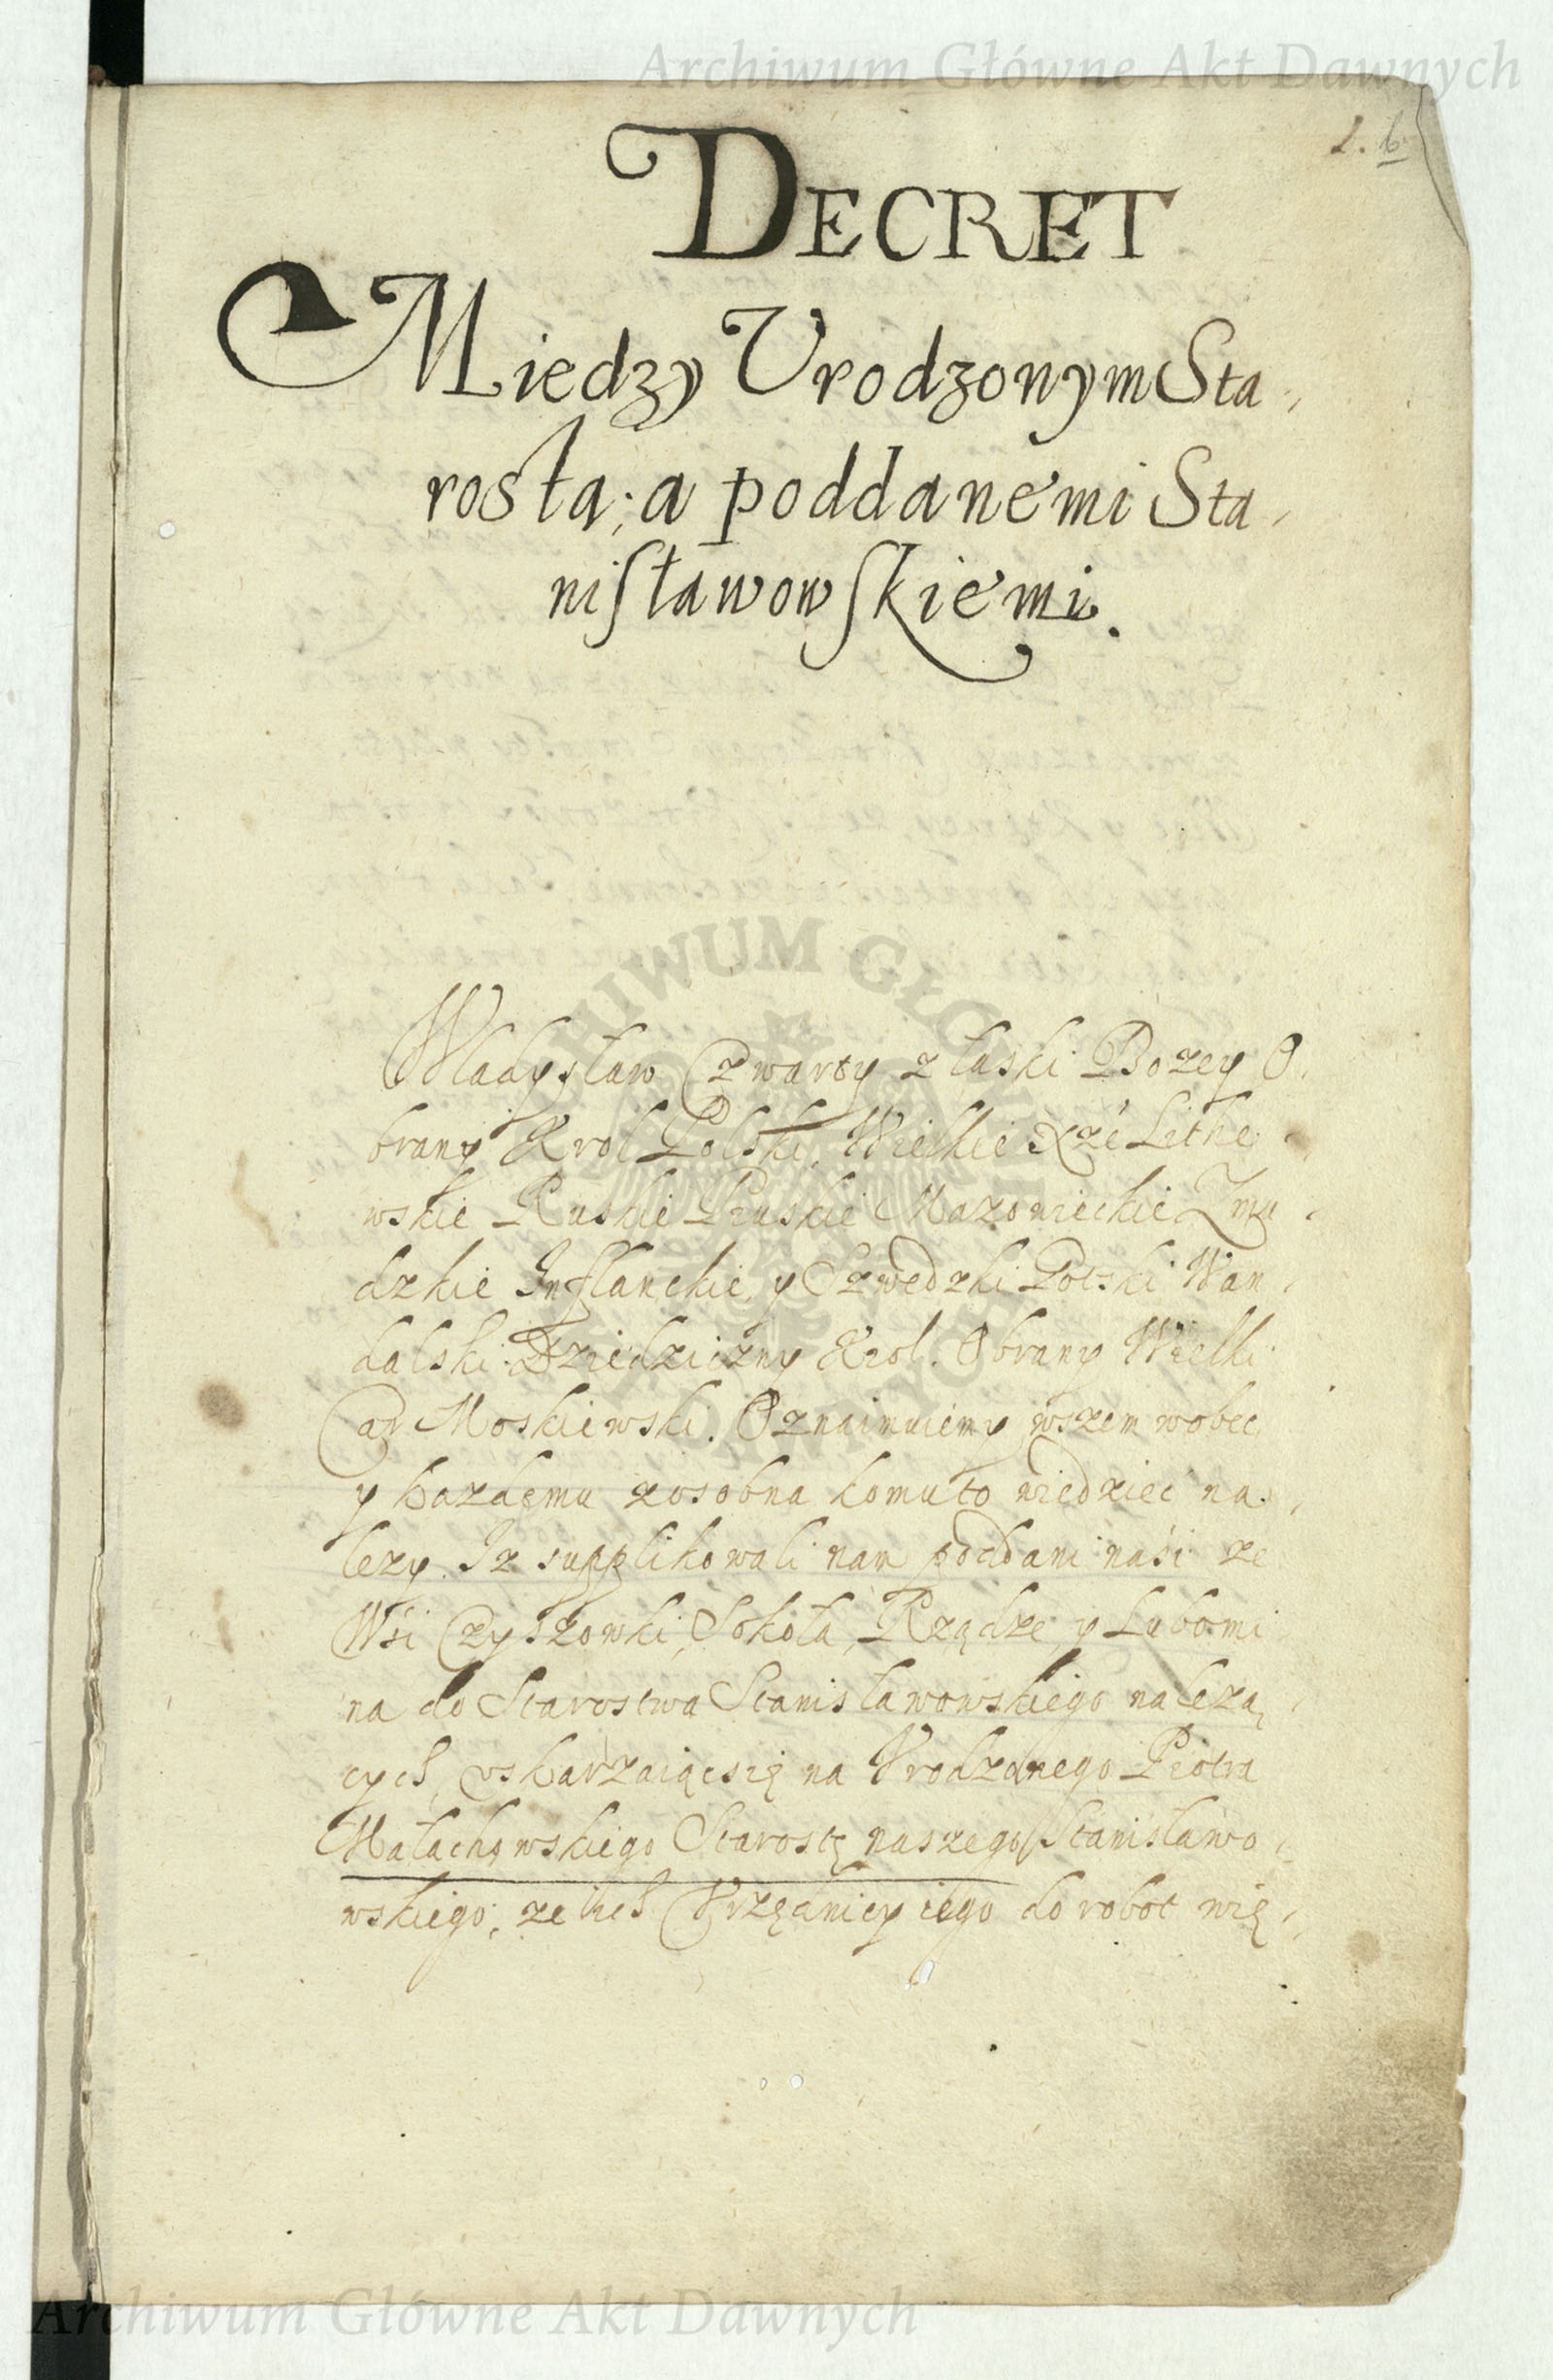 Archiwum Główne Akt Dawnych
1. 6
DECRET
Miedzy Vrodzonym Sta,
rostą; a poddanemi Sta,
nisławowskiemi.
Władysław Czwarty z łaski Bozey O,
brany Krol Polski, Wielkie Xżé Lithe,
wskie Ruskie Pruskie Mazowieckie Zmu,
dzkie Inflanckie, y Szwedzki Gotski Wan,
dalski Dziedziczny Krol. Obrany Wielki
Car Moskiewski. Oznaimuiemy wszem wobec,
y kazdemu zosobna komu to wiedzieć na,
lezy. Iz supplikowali nam poddani nasi ze
Wsi Czyszowki, Sokoła, Rządze, y Lubomi
na do Starostwa Stanisławowskiego nalezą,
cych, vskarzaiącsię na Vrodzonego Piotra
Małachowskiego Starostę naszego Stanisławo,
wskiego; ze ich Vrzędnicy iego do robot wię,
Archiwum Główne Akt Dawnych